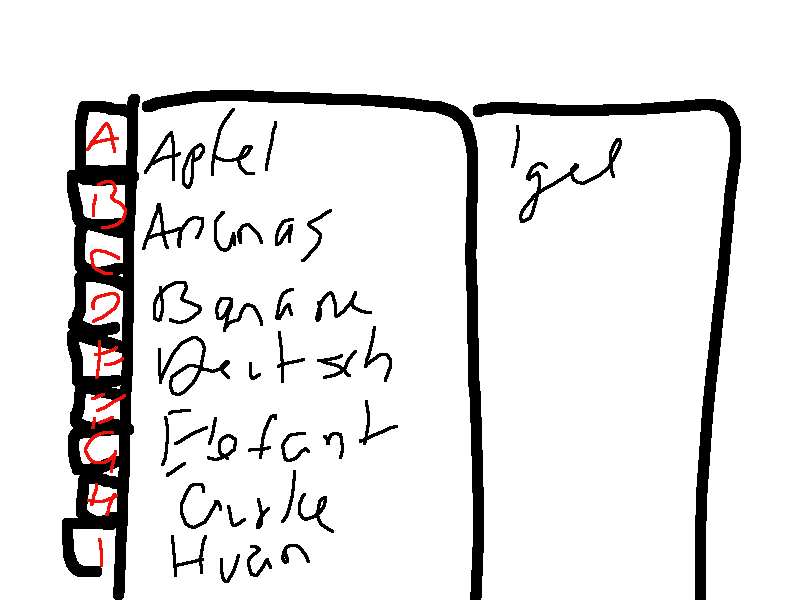 A
B
C
D
E
F
G
H
I
Apfel
Ananas
Banane
Deutsch
Elefant
Gurke
Huan
Igel